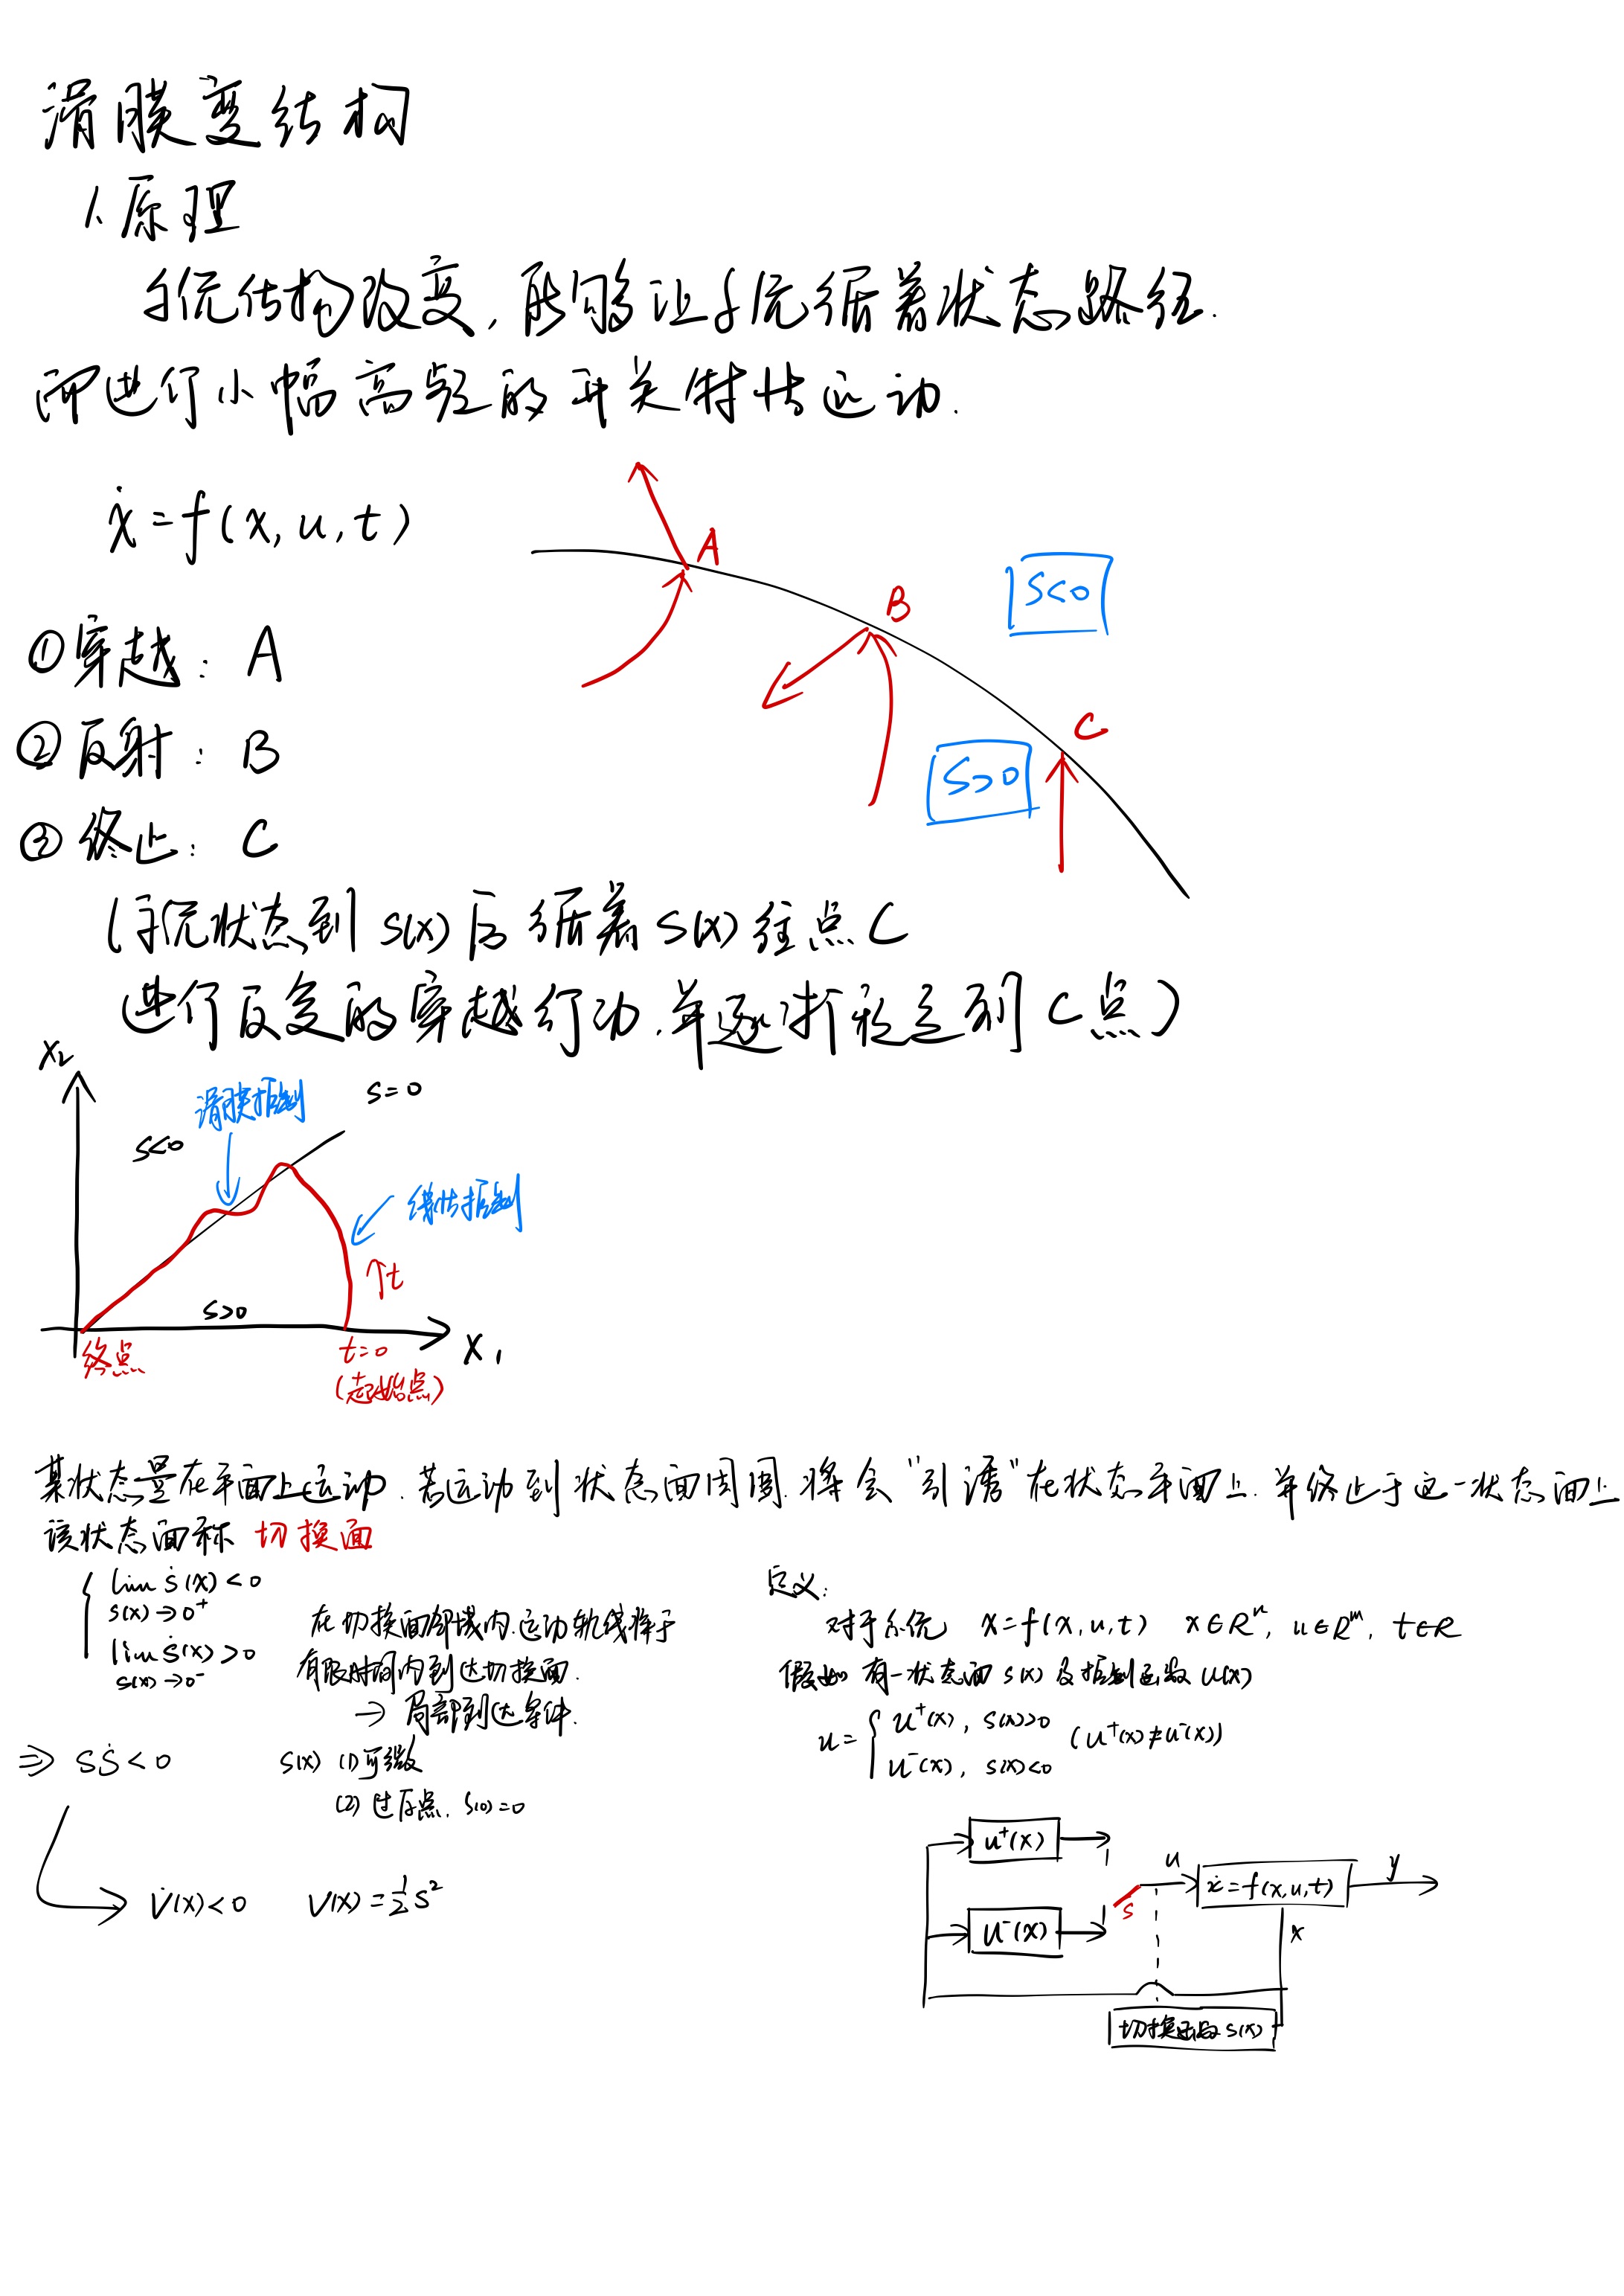 滑膜变结构
1、原理
系统结构改变，能够让系统循着状态路径.
而进行小幅高频的开关特性运动.
ẋ = f(x, u, t)
A
B
S<0
C
S>0
①穿越：A
②反射：B
③终止：C
(系统状态到 S(x) 后 循着 S(x) 往点 C
进行反复的穿越行动.并逐渐稳定到 C 点)
X₂
滑膜控制
S=0
S<0
线性控制
↑t
S>0
X₁
终点
t=0
(起始点)
某状态量在平面上运动.若运动到状态面周围.将会"引诱"在状态平面上.并终止于这一状态面上
该状态面称 切换面
lim ṡ(x) < 0
s(x)→0⁺
lim ṡ(x) > 0
s(x)→0⁻
在切换面邻域内.运动轨线将于
有限时间内到达切换面.
→ 局部到达条件.
⇒ SṠ < 0
S(x) (1) 可微
(2) 过原点. S(0)=0
V̇(x) < 0 V(x) = ½ S²
定义:
对于系统 ẋ = f(x, u, t) x∈Rⁿ, u∈Rᵐ, t∈R
假如 有一状态面 S(x) 及控制函数 u(x)
u = { u⁺(x), s(x)>0 (u⁺(x)≠u⁻(x))
u⁻(x), s(x)<0
u⁺(x)
u
ẋ = f(x,u,t)
y
S
u⁻(x)
x
切换函数 s(x)